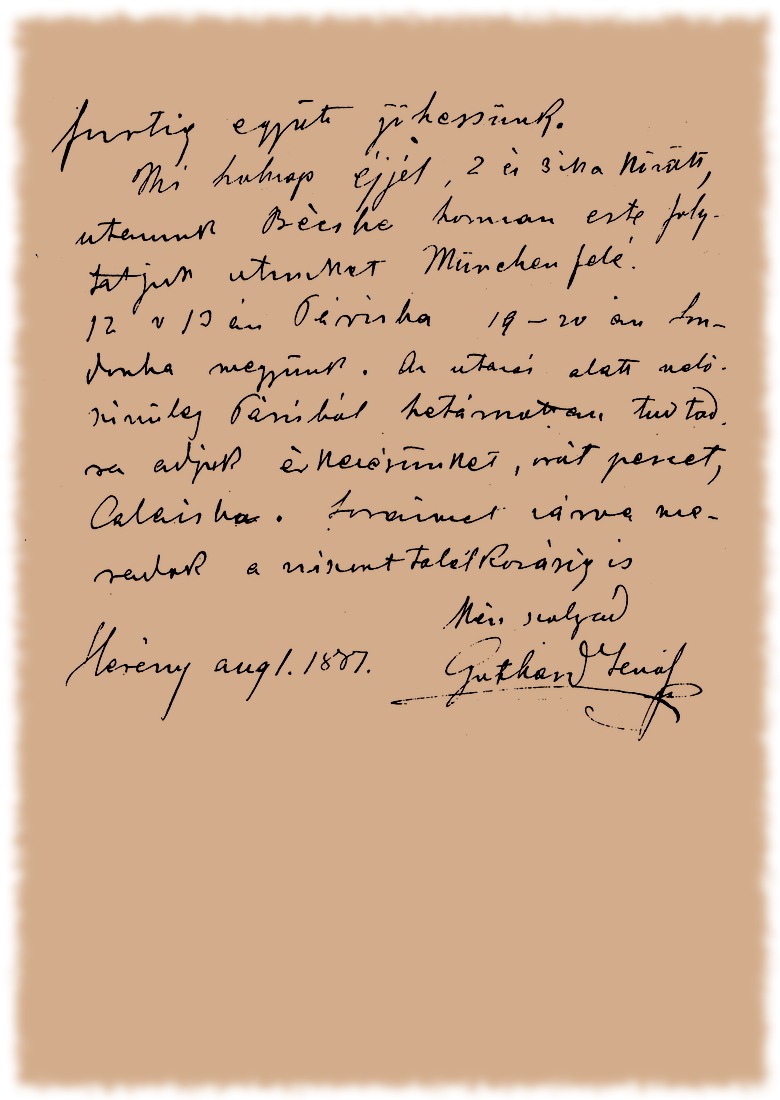 furtig együtt jöhessünk.
Mi holnap éjjel, 2 és 3 óra között,
utazunk Bécsbe honnan este foly-
tatjuk utunket München felé.
12 v 13 án Párisba 19–20 án Lon-
donba megyünk. Az utazás alatt való-
színüleg Párisból határozottan tudtod.
ra adjuk érkezésünket, órát percet,
Calaisba. Soraimat zárva ma-
radok a viszonttalálkozásig is
kész szolgád
Herény aug 1. 1887. Gothard Jenő